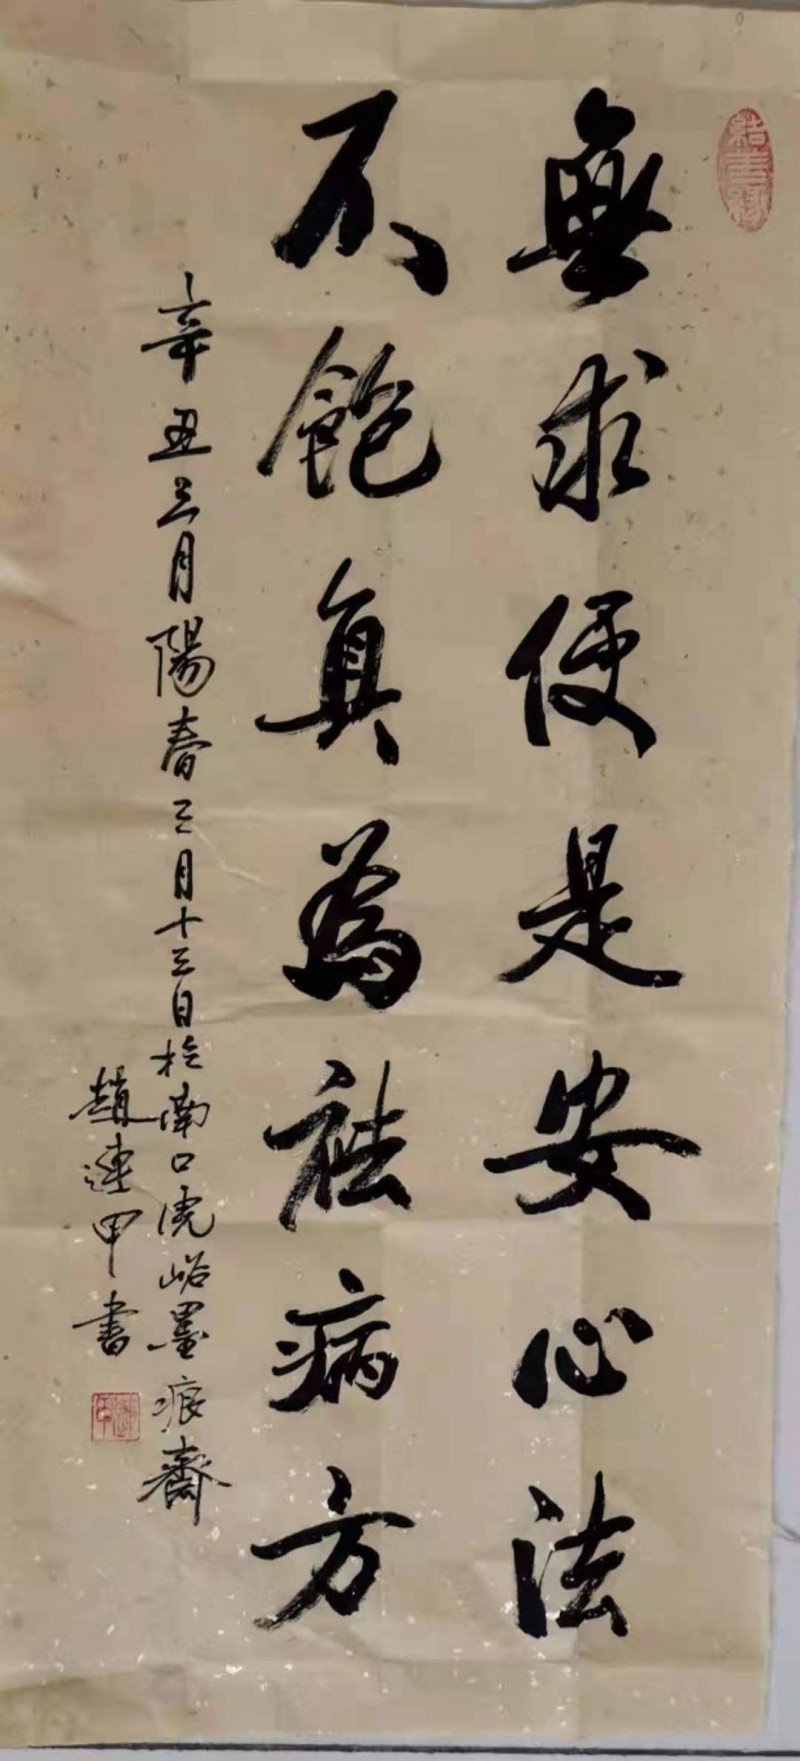 無求便是安心法
不飽真為祛病方
辛丑三月陽春三月十三日於南口虎峪墨痕齋
趙連甲書
結善緣